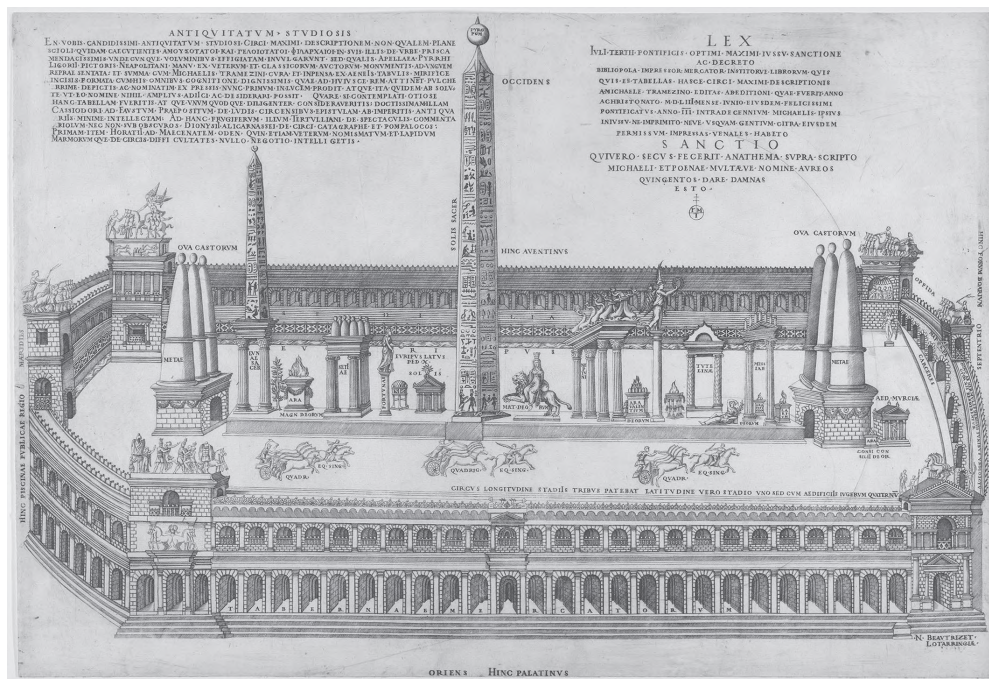 ANTIQVITATVM · STVDIOSIS
EN·VOBIS·CANDIDISSIMI·ANTIQVITATVM·STVDIOSI·CIRCI·MAXIMI·DESCRIPTIONEM·NON·QVALEM·PLANE
SCIOLI·QVIDAM·CAECVTIENTES
IN·SVIS·ILLIS·DE·VRBE·PRISCA
MENDACISSIMIS·VNDECVNQVE·VOLVMINIBVS·EFFIGIATAM·INVVLGARVNT·SED·QVALIS·APELLAEA·PYRRHI
LIGORII·PICTORIS·NEAPOLITANI·MANV·EX·VETERVM·ET·CLASSICORVM·AVCTORVM·MONVMENTIS·AD·VNGVEM
REPRAESENTATA·ET·SVMMA·CVM·MICHAELIS·TRAMEZINI·CVRA·ET·IMPENSA·EX·AENEIS·TABVLIS·MIRIFICE
INCISIS·FORMATA·CVM·HIS·OMNIBVS·COGNITIONE·DIGNISSIMIS·QVAE·AD·HVIVSCE·REM·ATTINET·PVLCHE
RRIME·DEPICTIS·AC·NOMINATIM·EXPRESSIS·NVNC·PRIMVM·IN·LVCEM·PRODIT·ATQVE·ITA·QVIDEM·ABSOLV
TE·VT·EO·NOMINE·NIHIL·AMPLIVS·ADIICI·AC·DESIDERARI·POSSIT· QVARE·SI·CONTEMPLATI·OTIOSE
HANC·TABELLAM·FVERITIS·ATQVE·VNVM·QVODQVE·DILIGENTER·CONSIDERAVERITIS·DOCTISSIMAM·ILLAM
CASSIODORI·AD·FAVSTVM·PRAEPOSITVM·DE·LVDIS·CIRCENSIBVS·EPISTVLAM·AB·IMPERITIS·ANTIQVA
RIIS·MINIME·INTELLECTAM· AC·HANC·FRVGIFERVM·ILLVM·TERTVLLIANI·DE·SPECTACVLIS·COMMENTA
RIOLVM·NEC·NON·SVBOBSCVROS·DIONYSII·ALICARNASSEI·DE·CIRCI·CATAGRAPHE·ET·POMPA·LOCOS·
PRIMAM·ITEM·HORATII·AD·MAECENATEM·ODEN·QVIN·ETIAM·VETERVM·NOMISMATVM·ET·LAPIDVM
MARMORVMQVE·DE·CIRCIS·DIFFICVLTATES·NVLLO·NEGOTIO·INTELLIGETIS·
LEX
IVLI·TERTII·PONTIFICIS·OPTIMI·MAXIMI·IVSSV·SANCTIONE
AC·DECRETO
BIBLIOPOLA·IMPRESSOR·MERCATOR·INSTITORVE·LIBRORVM·QVIS
QVIS·ES·TABELLAS·HASCE·CIRCI·MAXIMI·DESCRIPTIONIS
A·MICHAELE·TRAMEZINO·EDITAS·AB·EDITIONI·QVAE·FVERIT·ANNO
A·CHRISTO·NATO·M·D·LIII·MENSE·IVNIO·EIVSDEM·FELICISSIMI
PONTIFICATVS·ANNO·IIII·INTRA·DECENNIVM·MICHAELIS·IPSIVS
INIVSSV·NE·IMPRIMITO·NEVE·VSQVAM·GENTIVM·CITRA·EIVSDEM
PERMISSVM·IMPRESSAS·VENALES·HABETO
SANCTIO
QVI·VERO·SECVS·FECERIT·ANATHEMA·SVPRA·SCRIPTO
MICHAELI·ET·POENAE·MVLTAEVE·NOMINE·AVREOS
QVINGENTOS·DARE·DAMNAS
ESTO·
OCCIDENS
SOLIS SACER
HINC AVENTINVS
OVA CASTORVM
OVA CASTORVM
OPPIDA
CARCERES
SEPTENTRIO
HINC FORVM BOARIVM
METAE
METAE
EVRIPVS
EVRIPVS LATVS
PED·X·
SOLIS
LVNAE SACER
ARA
MAGN DEORVM
FORTVNAE
MAT·DEO·RVM
TVTE LINAE
AED·MVRCIAE
ARA
CONSI CON SILII DEOR
QVADR·
EQ·SING·
QVADRIG·
EQ·SING·
QVADR·
EQ·SING·
CIRCVS LONGITVDINE STADIIS TRIBVS PATEBAT LATITVDINE VERO STADIO VNO SED CVM AEDIFICIIS IVGERVM QVATERNV
HINC PISCINAE PVBLICAE REGIO
MERIDIES
TABERNAE MERCATORVM
·N· BEAVTRIZET·
LOTARRINGIAE
ORIENS HINC PALATINVS